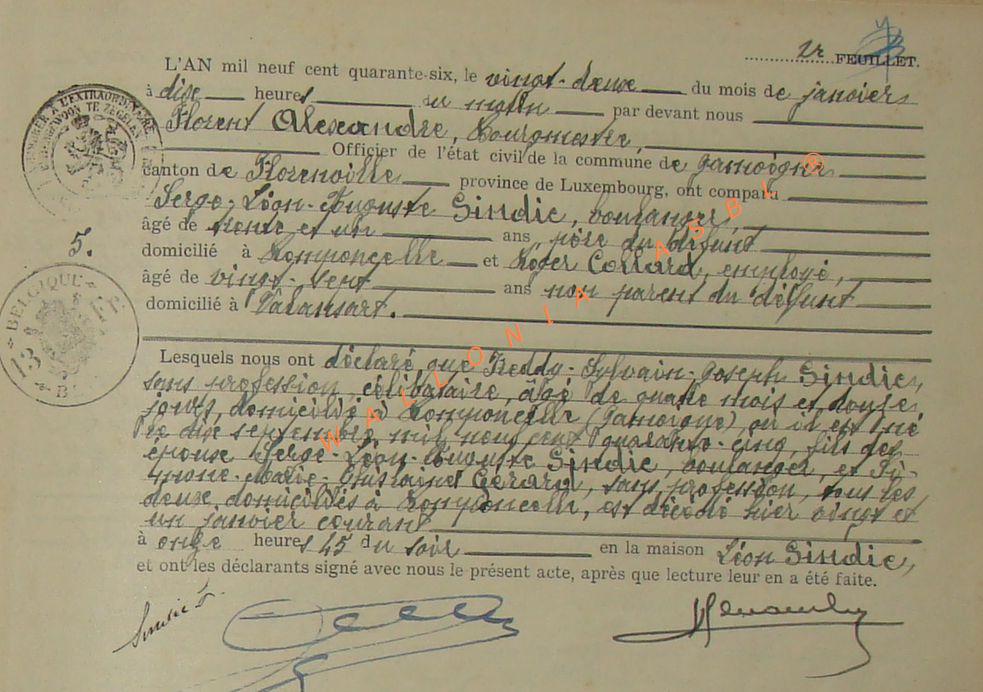 2r FEUILLET.
L'AN mil neuf cent quarante-six, le vingt-deux du mois de janvier
à dix heures du matin par devant nous
Florent Alexandre, Bourgmestre,
Officier de l'état civil de la commune de Jamoigne
canton de Florenville province de Luxembourg, ont comparu
Serge-Léon-Auguste Sindic, boulanger,
âgé de trente et un ans, père du défunt
domicilié à Romponcelle et Roger Collard, employé,
âgé de vingt-sept ans non parent du défunt
domicilié à Valansart.
5.
BELGIQUE
13 FR.
WALLONIA ASBL ®
Lesquels nous ont déclaré que Freddy-Sylvain-Joseph Sindic,
sans profession, célibataire, âgé de quatre mois et douze
jours, domicilié à Romponcelle (Jamoigne) où il est né
le dix septembre mil neuf cent quarante-cinq, fils des
époux Serge-Léon-Auguste Sindic, boulanger, et Si-
mone-Marie-Ghislaine Gérard, sans profession, tous les
deux domiciliés à Romponcelle, est décédé hier vingt et
un janvier courant
à onze heures 45 du soir en la maison Léon Sindic,
et ont les déclarants signé avec nous le présent acte, après que lecture leur en a été faite.
Sindic S.